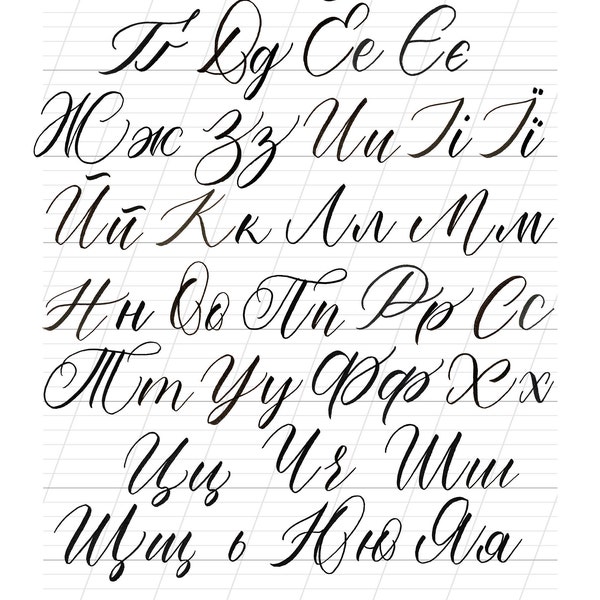 Ґґ Дд Ее Єє
Жж Зз Ии Іі Її
Йй Кк Лл Мм
Нн Оо Пп Рр Сс
Тт Уу Фф Хх
Цц Чч Шш
Щщ ь Юю Яя